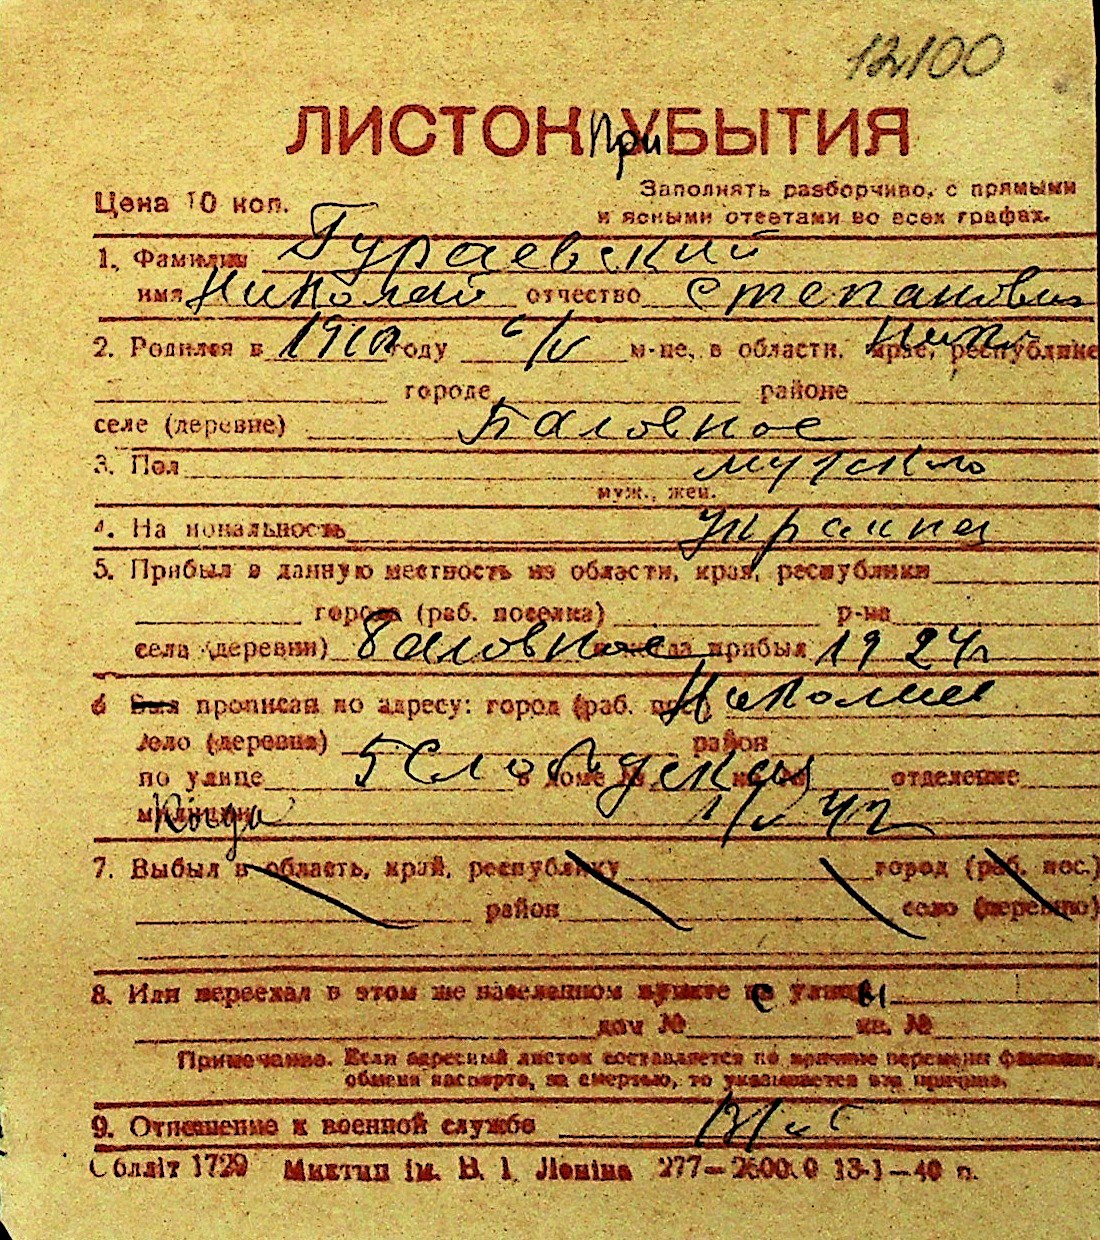 12100
ЛИСТОК При УБЫТИЯ
Цена 10 коп.
Заполнять разборчиво, с прямыми
и ясными ответами во всех графах.
1. Фамилия Гураевский
имя Николай отчество Степанович
2. Родился в 1910 году м-це, в области, крае, республике
городе районе
селе (деревне) Баловное
3. Пол мужской
муж., жен.
4. Национальность
5. Прибыл в данную местность из области, края, республики
города (раб. поселка) р-на
села (деревни) Баловное прибыл 1924
6 Был прописан по адресу: город (раб. пос.)
село (деревня) район
по улице 5 Слободская в доме № кв. № отделение
милиции Когда
7. Выбыл в область, край, республику город (раб. пос.)
район село (деревню)
8. Или переехал в этом же населенном пункте с улицы
дом № кв. №
Примечание. Если адресный листок составляется по причине перемены фамилии,
обмена паспорта, за смертью, то указывается эта причина.
9. Отношение к военной службе
Облліт 1729 Миктип ім. В. І. Леніна 277— 13-1—40 п.